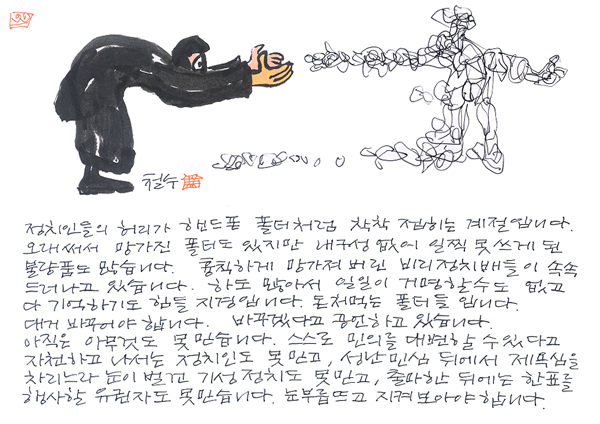 철수
정치인들의 허리가 핸드폰 폴더처럼 착착 접히는 계절입니다.
오래써서 망가진 폴더도 있지만 내구성 없어 일찍 못쓰게 된
불량품도 많습니다. 흉칙하게 망가져 버린 비리정치배들이 속속
드러나고 있습니다. 하도 많아서 일일이 거명할수도 없고
다 기억하기도 힘들 지경입니다. 돈쳐먹는 폴더들 입니다.
대거 바꾸어야 합니다. 바꾸겠다고 공언하고 있습니다.
아직은 아무것도 못 믿습니다. 스스로 민의를 대변할 수 있다고
자천하고 나서는 정치인도 못 믿고, 성난 민심 뒤에서 제 뱃속을
차리느라 눈이 벌건 기성정치도 못 믿고, 출마한 뒤에는 한표를
행사할 유권자도 못믿습니다. 눈부릅뜨고 지켜보아야 합니다.